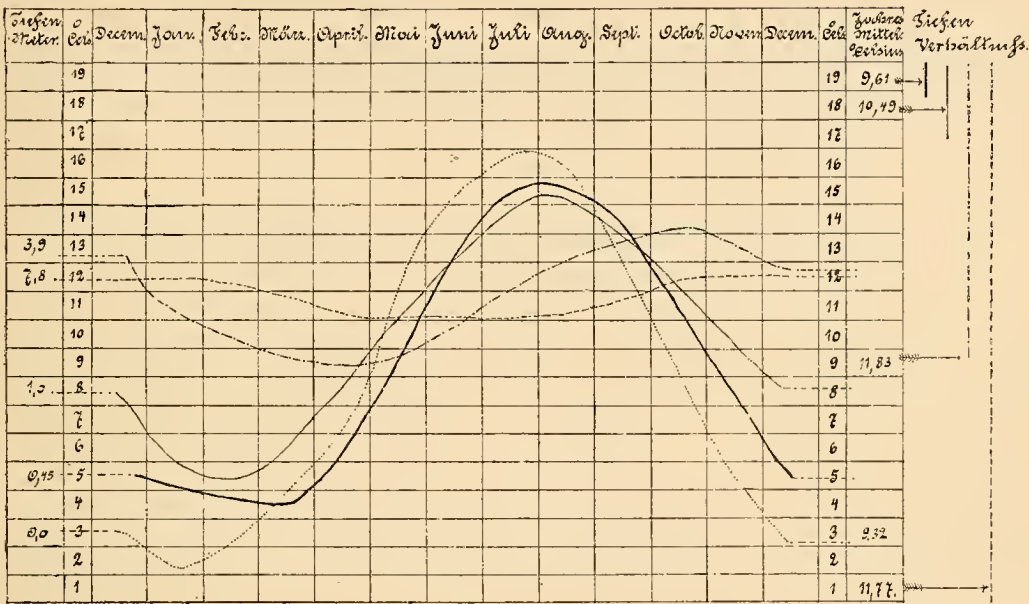 Tiefen Meter. o Cels. Decem. Jan. Febr. März. April. Mai Juni Juli Aug. Sept. Octob. Novem Decem. o Cels. Jahres Mittel °Celsius Tiefen Verhältnuss.
19 19 9,61
18 18 10,49
17 17
16 16
15 15
14 14
3,9 13 13
7,8 12 12
11 11
10 10
9 9 11,83
1,0 8 8
7 7
6 6
0,45 5 5
4 4
0,0 3 3 9,32
2 2
1 1 11,77.